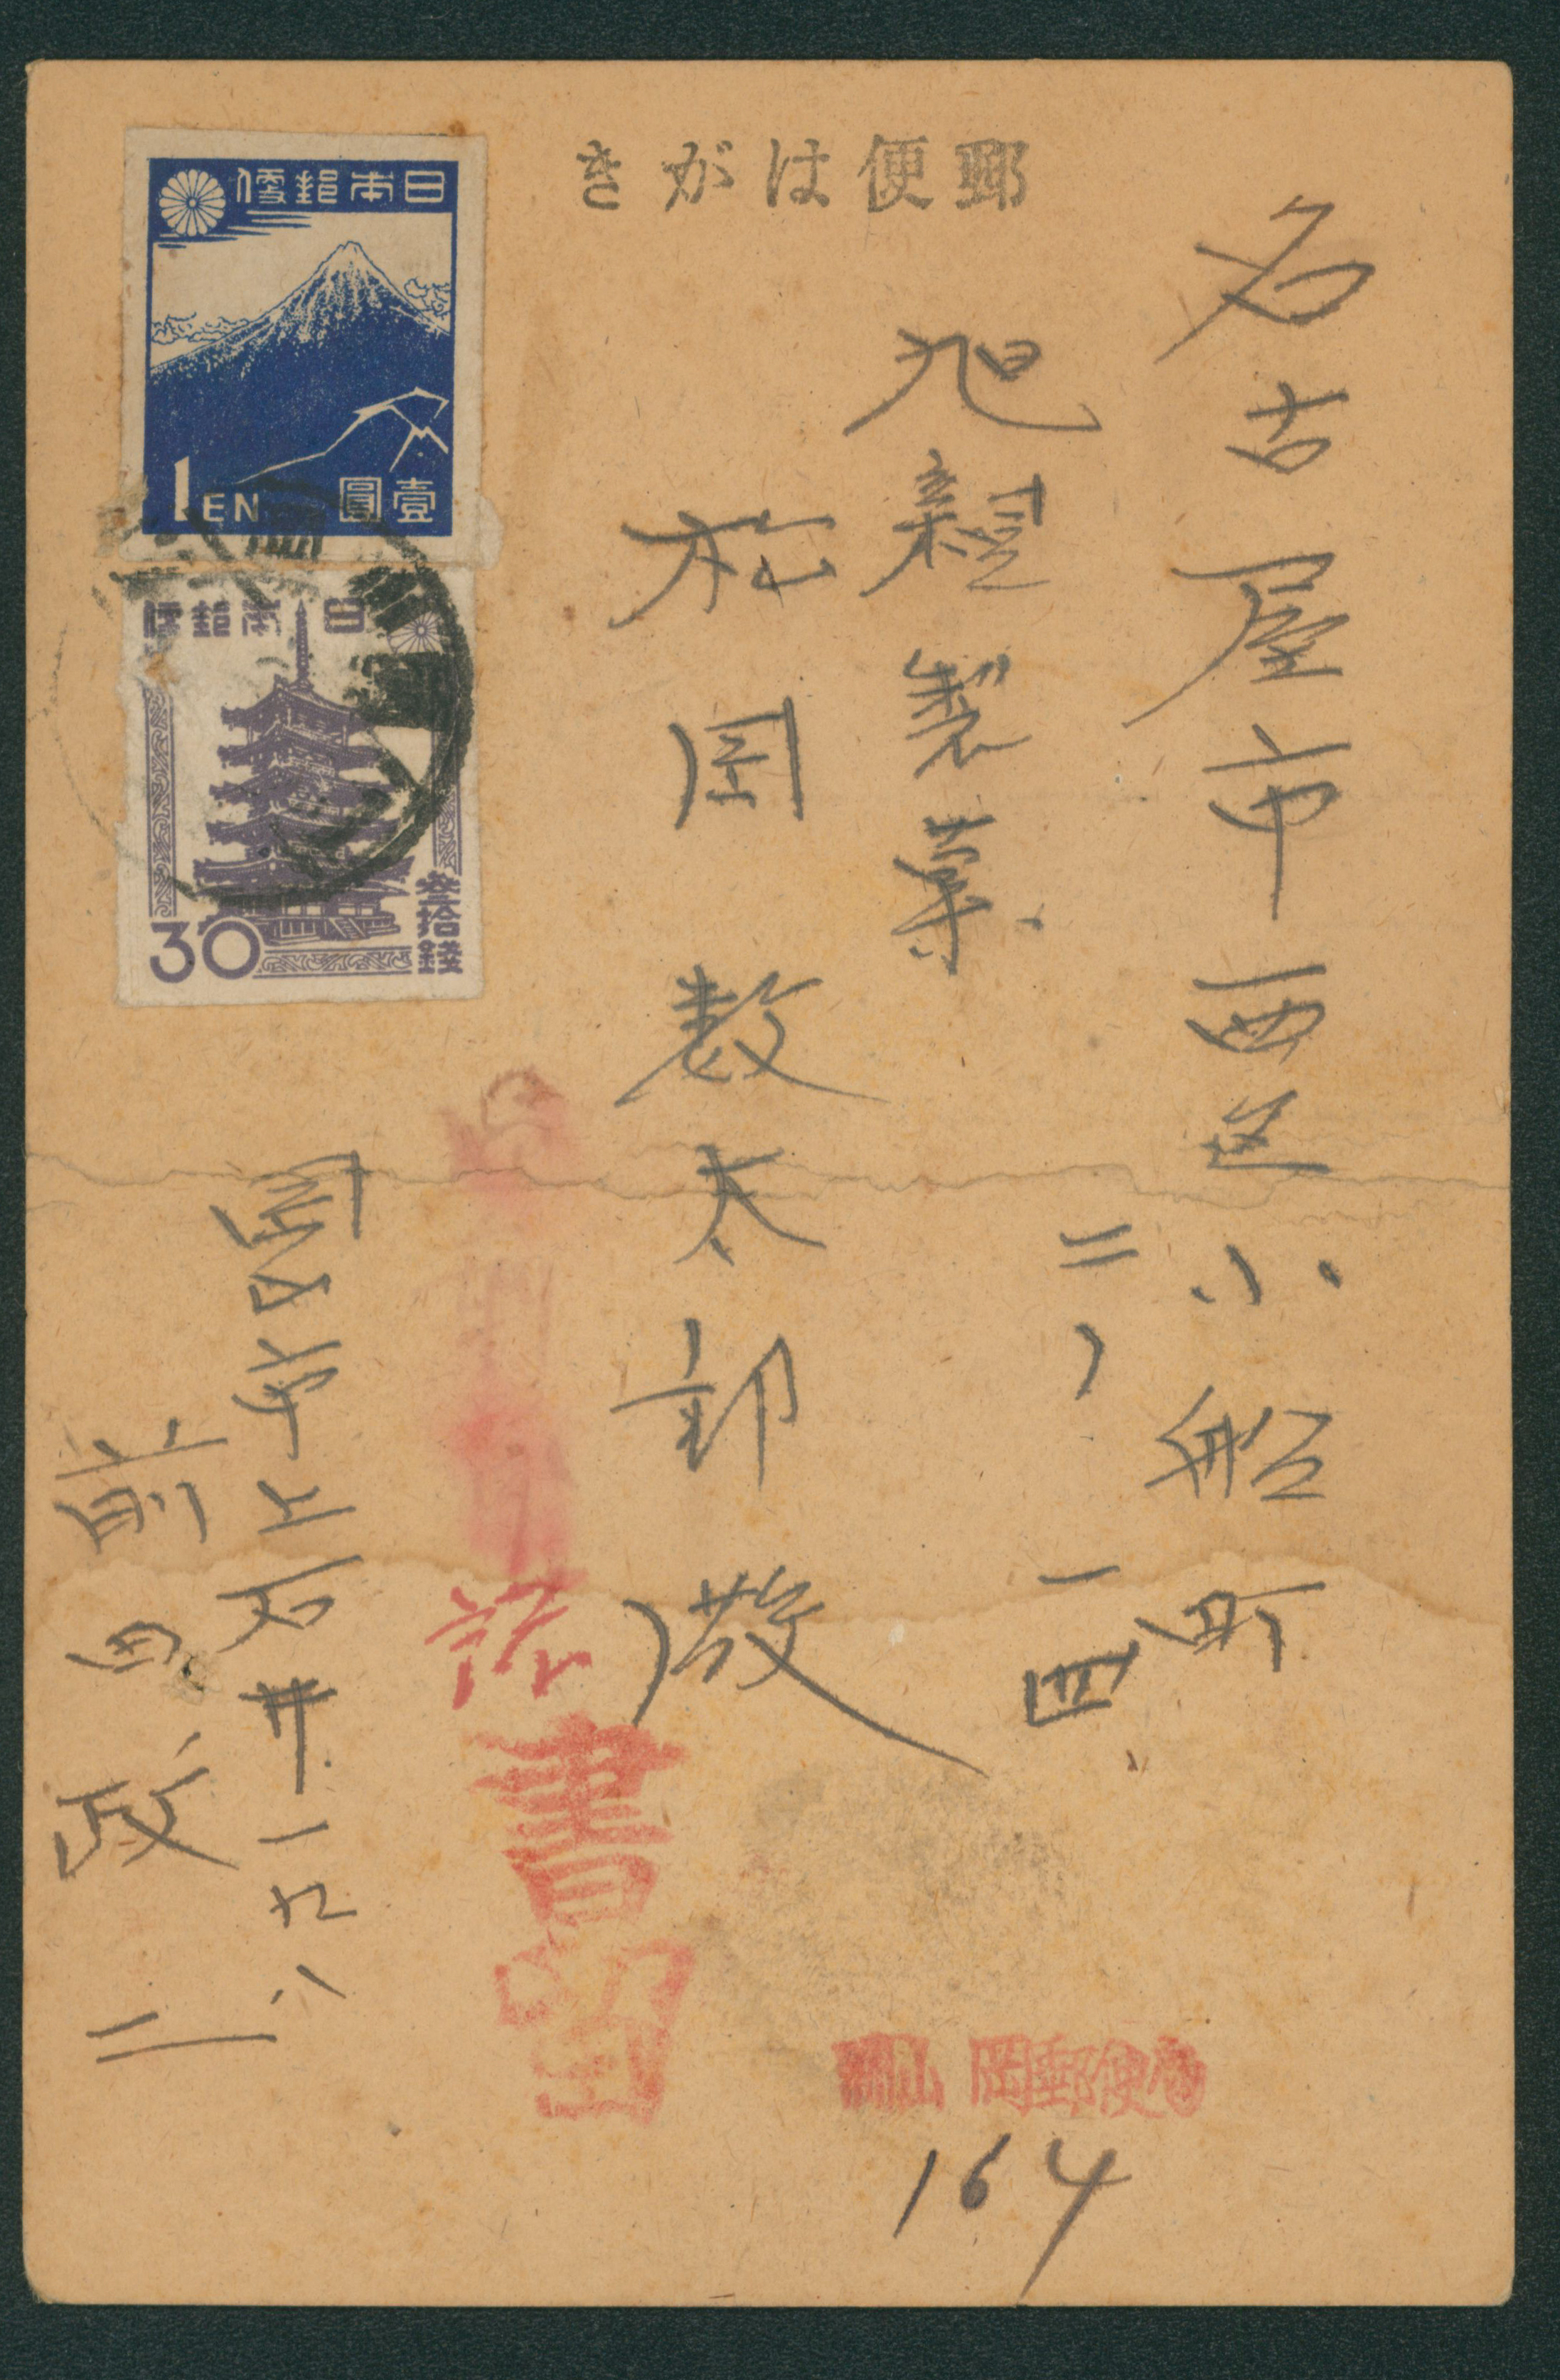 郵便はがき
名古屋市西区小船町
二ノ一四
旭製菓
松岡数太郎
岡山市上石井一九八
前田政二
日本郵便
1EN 壹圓
日本郵便
30 参拾錢
書留
岡山 岡郵便
164